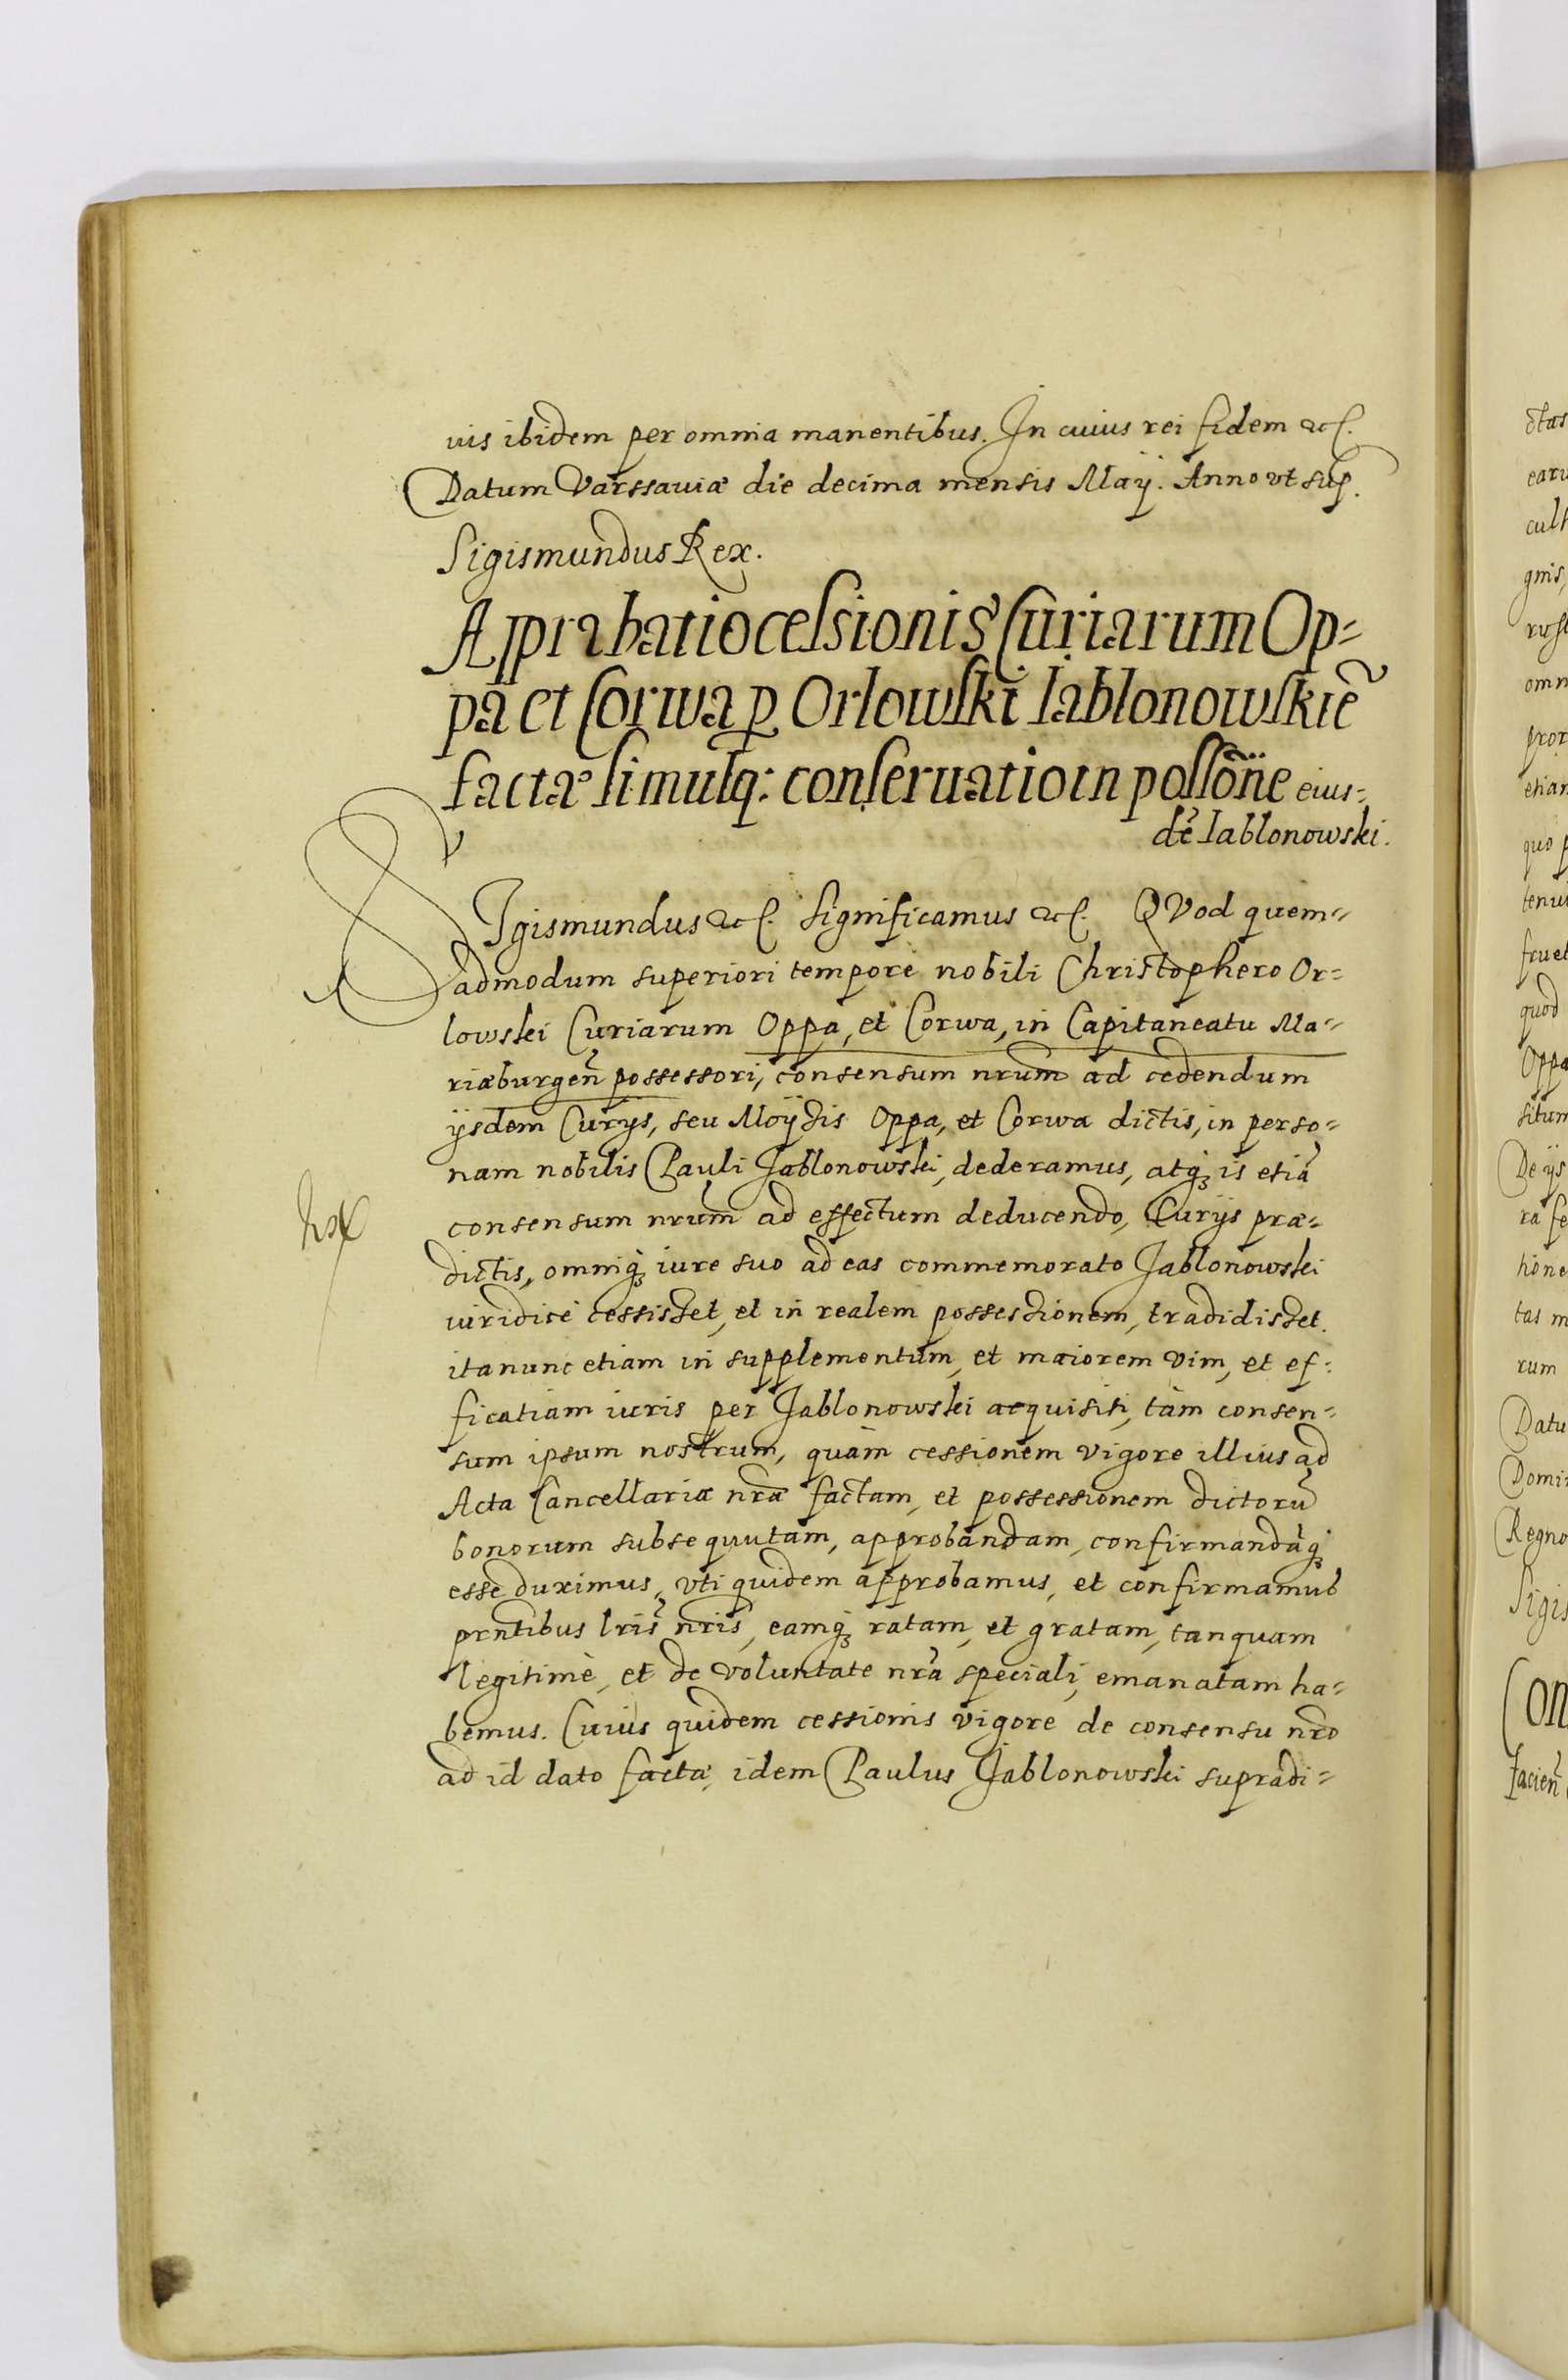 uis ibidem per omnia manentibus. In cuius rei fidem etc.
Datum Varssauiæ die decima mensis Maÿ. Anno vt sup.
Sigismundus Rex.
Approbatio cessionis Curiarum Op=
pa et Corwa p Orlowski Iablonowskiẽ
factæ simulq: conseruatio in possõne eius=
dẽ Iablonowski.
SIgismundus etc. Significamus etc. QVod quem=
admodum superiori tempore nobili Christophero Or=
lowski Curiarum Oppa, et Corwa, in Capitaneatu Ma=
riæburgeñ possessori, consensum nrum ad cedendum
ijsdem Curijs, seu Moÿzis Oppa, et Corwa dictis, in perso=
nam nobilis Pauli Jablonowski, dederamus, atq₃ is etiã
consensum nrum ad effectum deducendo, Curijs præ=
dictis, omniq₃ iure suo ad eas commemorato Jablonowski
iuridicè cessisset, et in realem possessionem, tradidisset.
ita nunc etiam in supplementum, et maiorem vim, et ef=
ficatiam iuris per Jablonowski acquisiti, tàm consen=
sum ipsum nostrum, quàm cessionem vigore illius ad
Acta Cancellariæ nræ factam, et possessionem dictorũ
bonorum subsequutam, approbandam, confirmandãq₃
esse duximus, vti quidem approbamus, et confirmamus
prntibus lris nris, eamq₃ ratam, et gratam, tanquam
legitimè, et de voluntate nra speciali, emanatam ha=
bemus. Cuius quidem cessionis vigore de consensu nro
ad id dato factæ, idem Paulus Jablonowski supradi=
ctas
earu
cult
gnis,
rust
omn
pror
etiam
quo p
tenu
fruct
quod
Oppa
situm
De ijs
ra se
hone
tas m
rum
Datu
Domi
Regno
Sigis
Con
facieñ